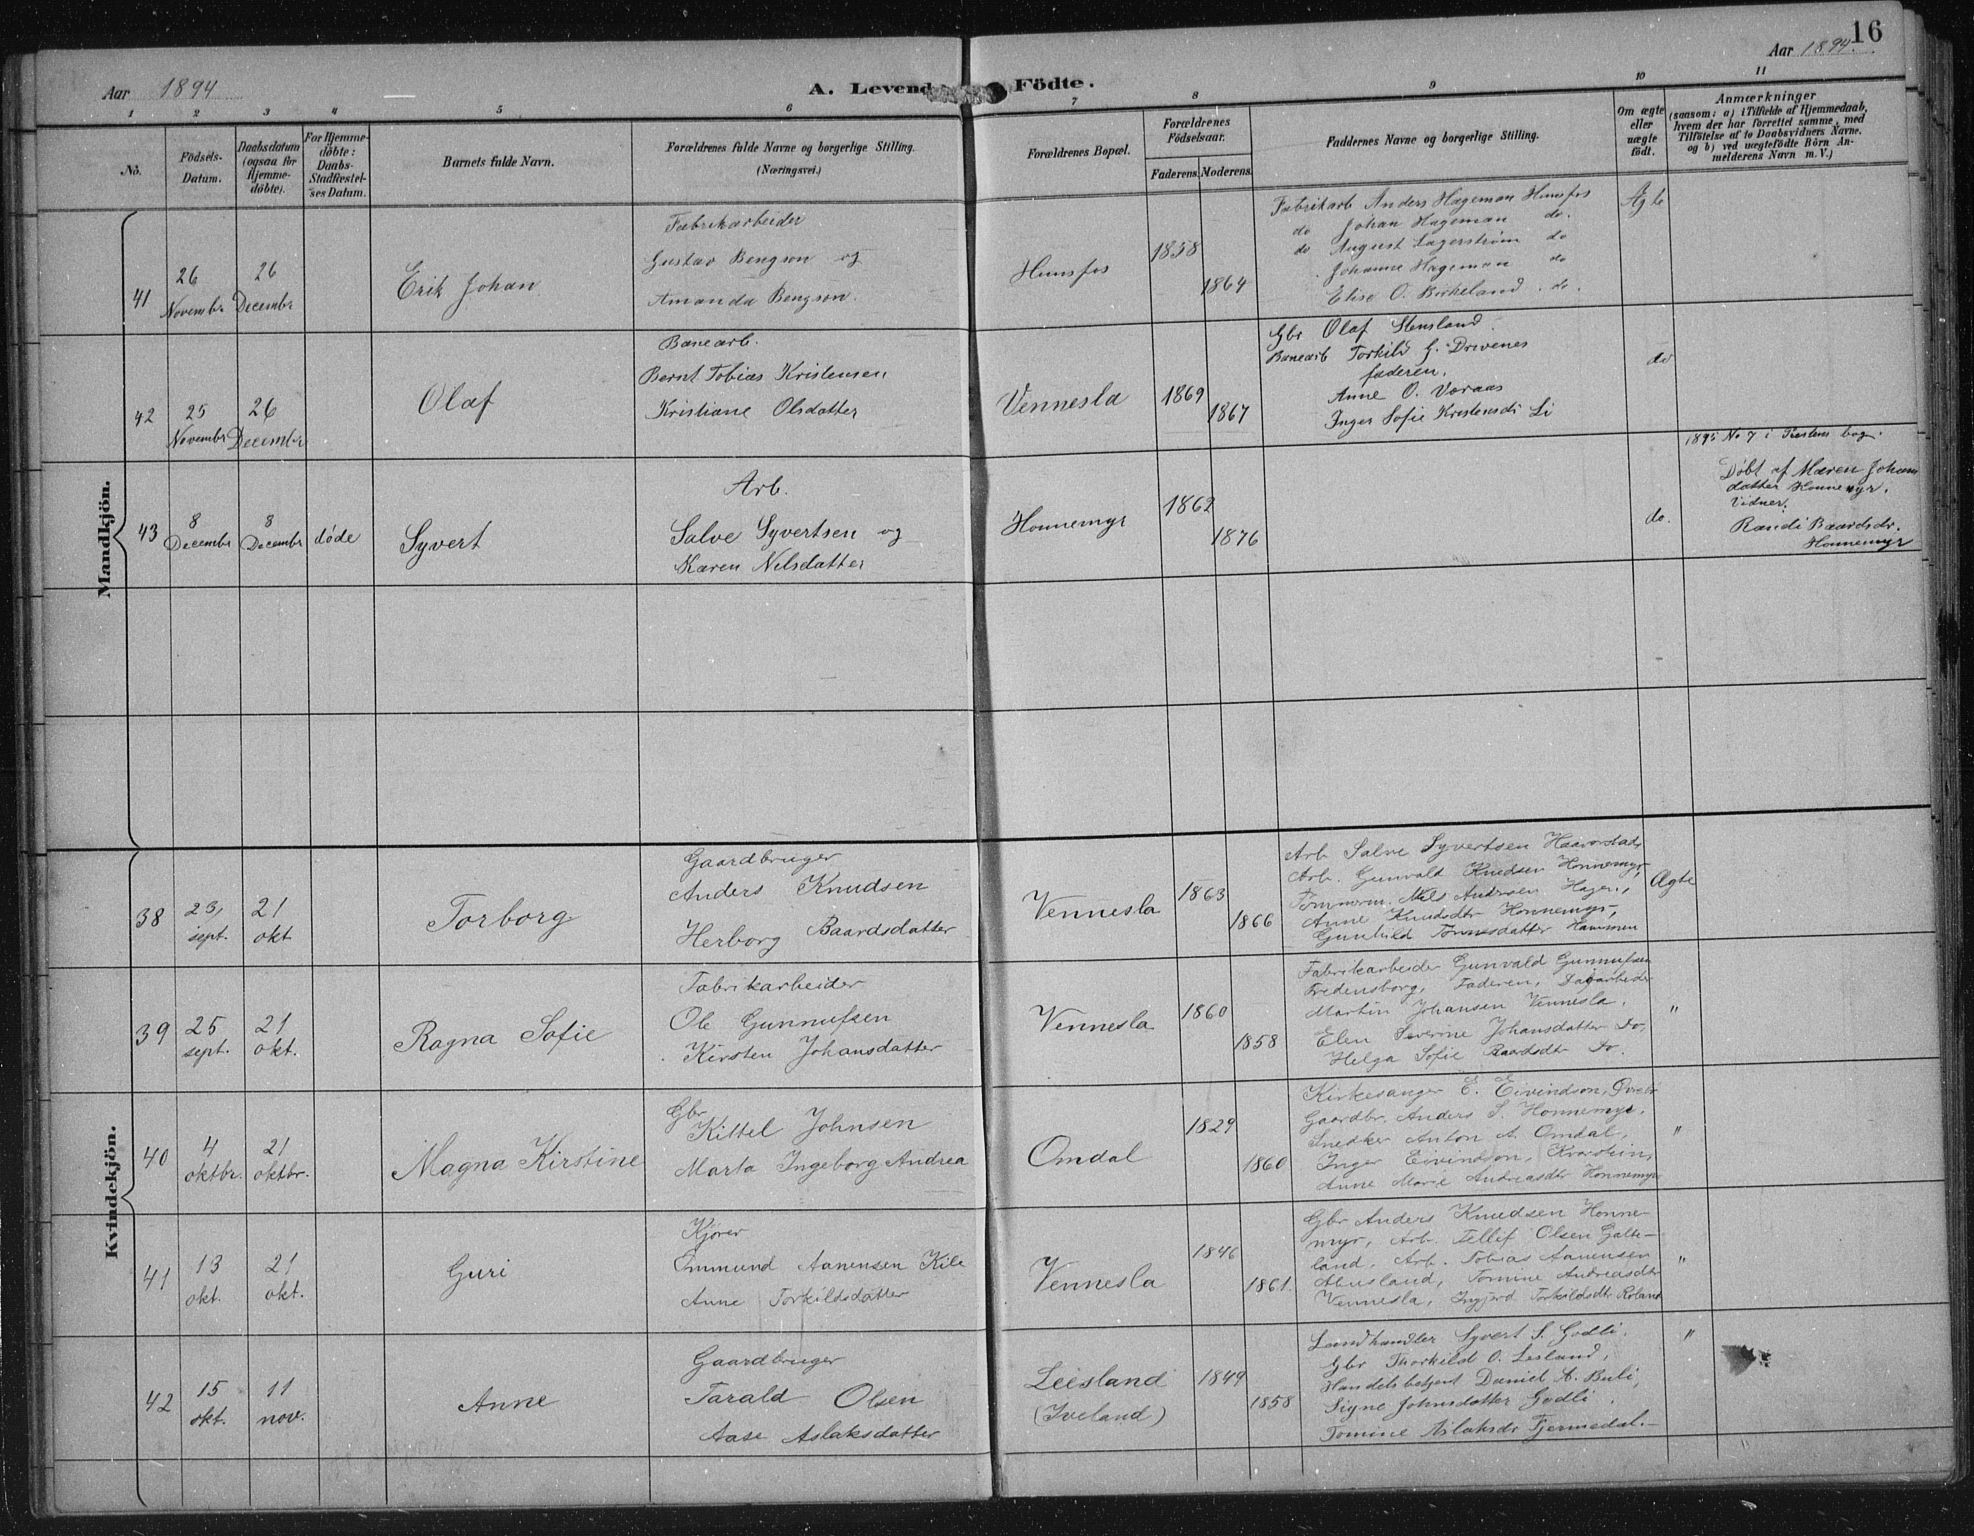 Aar 1894
A. Levende Födte.
Aar 1894.
16
1 2 3 4 5 6 7 8 9 10 11
No.
Födsels-
Datum.
Daabsdatum
(ogsaa for
Hjemme-
döbte).
For Hjemme-
döbte:
Daabs-
Stadfæstel-
ses Datum.
Barnets fulde Navn.
Forældrenes fulde Navne og borgerlige Stilling.
(Næringsvei.)
Forældrenes Bopæl.
Forældrenes
Födselsaar.
Faderens. Moderens.
Faddernes Navne og borgerlige Stilling.
Om ægte
eller
uægte
født.
Anmærkninger
(saasom: a) i Tilfælde af Hjemmedaab,
hvem der har forrettet samme, med
Tilföielse af to Daabsvidners Navne.
og b) ved uægtefödte Börn An-
melderens Navn m. V.)
Mandkjön.
41
26
Novembr
26
Decembr
Erik Johan
Fabrikarbeider
Gustav Bengson og
Amanda Bengson.
Hunsfos
1858
1864
Fabrikarb Anders Hageman Hunsfos
do Johan Hageman do.
do August Lagerstrøm do
Johanne Hageman do
Elise O. Birkeland. do.
Ægte
42
25
Novembr
26
Decembr
Olaf
Banearb.
Bernt Tobias Kristensen
Kristiane Olsdatter
Vennesla
1869
1867
Gbr Olaf Stensland.
Banearb Torkild G. Drivenes
faderen.
Anne O. Voraas
Inger Sofie Kristensdr Li
do
43
8
Decembr
8
Decembr
døde
Syvert
Arb.
Salve Syvertsen og
Karen Nilsdatter
Honnemyr
1862
1876
do.
1895 No 7 i Prestens bog.
Døbt af Maren Johans
datter Honnemyr.
Vidner.
Randi Baardsdr.
Honnemyr
Kvindekjön.
38
23,
sept.
21
okt
Torborg
Gaardbruger
Anders Knudsen
Herborg Baardsdatter
Vennesla
1863
1866
Arb. Salve Syvertsen Haavorstad,
Arb. Gunvald Knudsen Honnemyr,
Tømmerm. Nils Andersen Hagen,
Anne Knudsdtr Honnemyr,
Gunhild Tønnesdatter Hammen
Ægte
39
25
sept.
21
okt.
Ragna Sofie
Fabrikarbeider
Ole Gunnufsen
Kirsten Johansdatter
Vennesla
1860
1858
Fabrikarbeider Gunvald Gunnufsen
Fredensborg, Faderen, Dagarbeider
Martin Johansen Vennesla,
Elen Severine Johansdatter Do,
Helga Sofie Baardsdtr Do.
"
40
4
oktbr.
21
oktbr.
Magna Kirstine
Gbr
Kittel Johnsen
Marta Ingeborg Andrea
Omdal
1829
1860
Kirkesanger E. Eivindson, Øvrebø
Gaardbr. Anders S. Honnemyr,
Snedker Anton A. Omdal,
Inger Eivindson, Kvarstein,
Anne Marie Andreasdtr Honnemyr
"
41
13
okt.
21
okt.
Guri
Kjører
Ommund Aanensen Kile
Anne Torkildsdatter
Vennesla
1846
1861.
Gbr Anders Knudsen Honne-
myr, Arb. Tellef Olsen Galte-
land, Arb. Tobias Aanensen
Abusland, Tomine Andreasdtr
Vennesla, Ingjerd Torkildsdtr Roland
"
42
15
okt.
11
nov.
Anne
Gaardbruger
Tarald Olsen
Aase Aslaksdatter
Leesland
(Iveland)
1849
1858
Landhandler Syvert S. Godli,
Gbr Thorkild O. Lesland,
Handelsbetjent Daniel A. Buli,
Signe Johnsdatter Godli,
Tomine Aslaksdr Fjermedal.
"